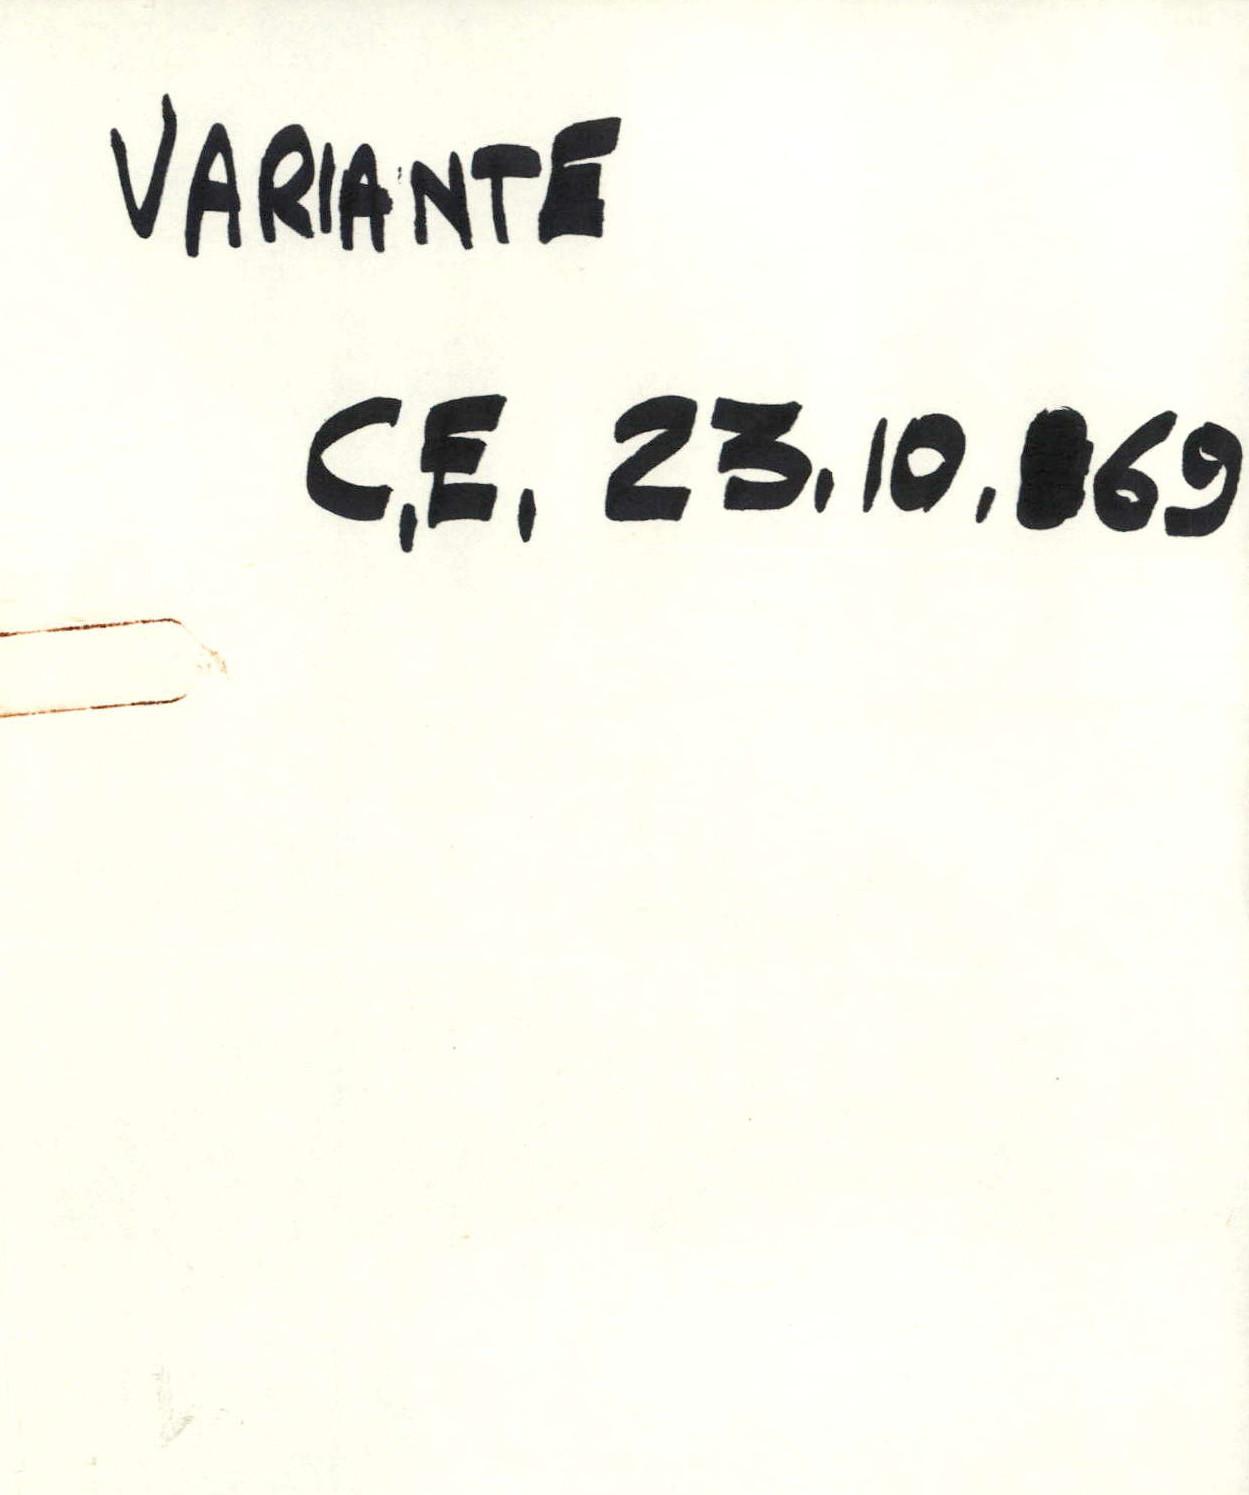 VARIANTE
C.E. 23.10.69